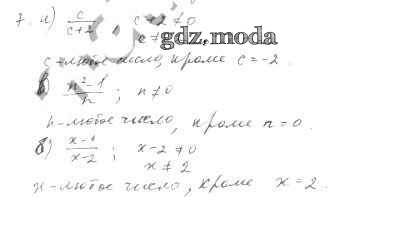 7. а) c/(c+2), c+2≠0
c≠
gdz.moda
c – любое число, кроме c=-2.
б) (n²-1)/n ; n≠0
n – любое число, кроме n=0.
в) (x-1)/(x-2) ; x-2≠0
x≠2
x – любое число, кроме x=2.